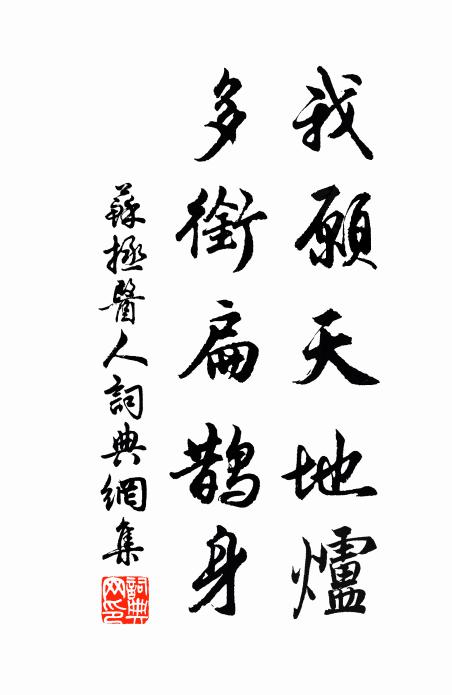 我願天地爐
多銜扁鵲身
蘇拯醫人詞典網集
詞典
网印